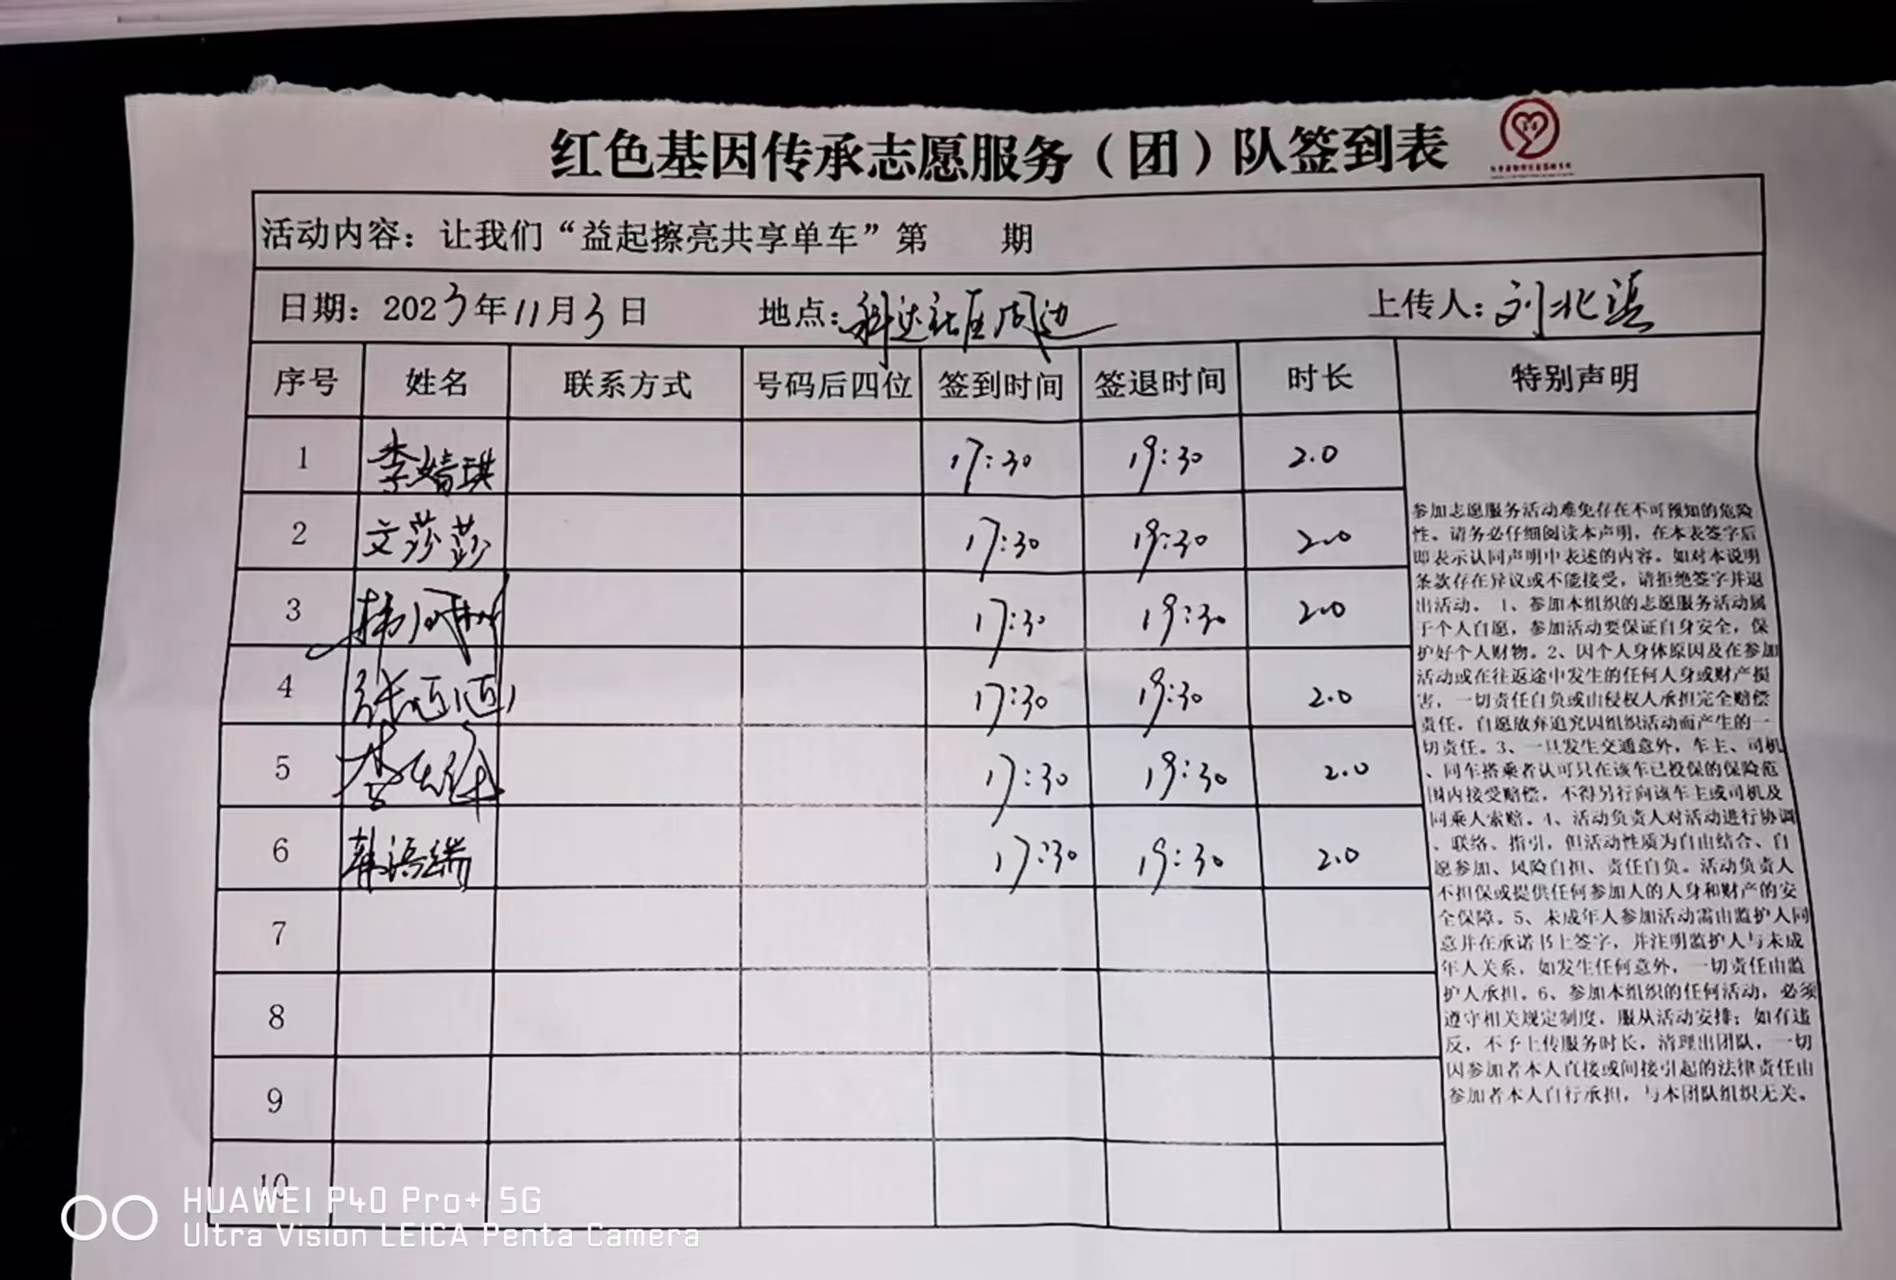 红色基因传承志愿服务（团）队签到表
活动内容：让我们“益起擦亮共享单车”第 期
日期：2023年11月3日 地点：科达社区周边 上传人：刘北
序号 姓名 联系方式 号码后四位 签到时间 签退时间 时长 特别声明
1 李婧琪 17:30 19:30 2.0
2 文莎莎 17:30 19:30 2.0
3 17:30 19:30 2.0
4 张 17:30 19:30 2.0
5 李 17:30 19:30 2.0
6 韩语端 17:30 19:30 2.0
7
8
9
10
参加志愿服务活动难免存在不可预知的危险
性。请务必仔细阅读本声明，在本表签字后
即表示认同声明中表述的内容。如对本说明
条款存在异议或不能接受，请拒绝签字并退
出活动。1、参加本组织的志愿服务活动属
于个人自愿，参加活动要保证自身安全，保
护好个人财物。2、因个人身体原因及在参加
活动或在往返途中发生的任何人身或财产损
害，一切责任自负或由侵权人承担完全赔偿
责任，自愿放弃追究因组织活动而产生的一
切责任。3、一旦发生交通意外，车主、司机
、同车搭乘者认可只在该车已投保的保险范
围内接受赔偿，不得另行向该车主或司机及
同乘人索赔。4、活动负责人对活动进行协调
、联络、指引，但活动性质为自由结合、自
愿参加、风险自担、责任自负。活动负责人
不担保或提供任何参加人的人身和财产的安
全保障。5、未成年人参加活动需由监护人同
意并在承诺书上签字，并注明监护人与未成
年人关系，如发生任何意外，一切责任由监
护人承担。6、参加本组织的任何活动，必须
遵守相关规定制度，服从活动安排；如有违
反，不予上传服务时长，清理出团队，一切
因参加者本人直接或间接引起的法律责任由
参加者本人自行承担，与本团队组织无关。
HUAWEI P40 Pro+ 5G
Ultra Vision LEICA Penta Camera